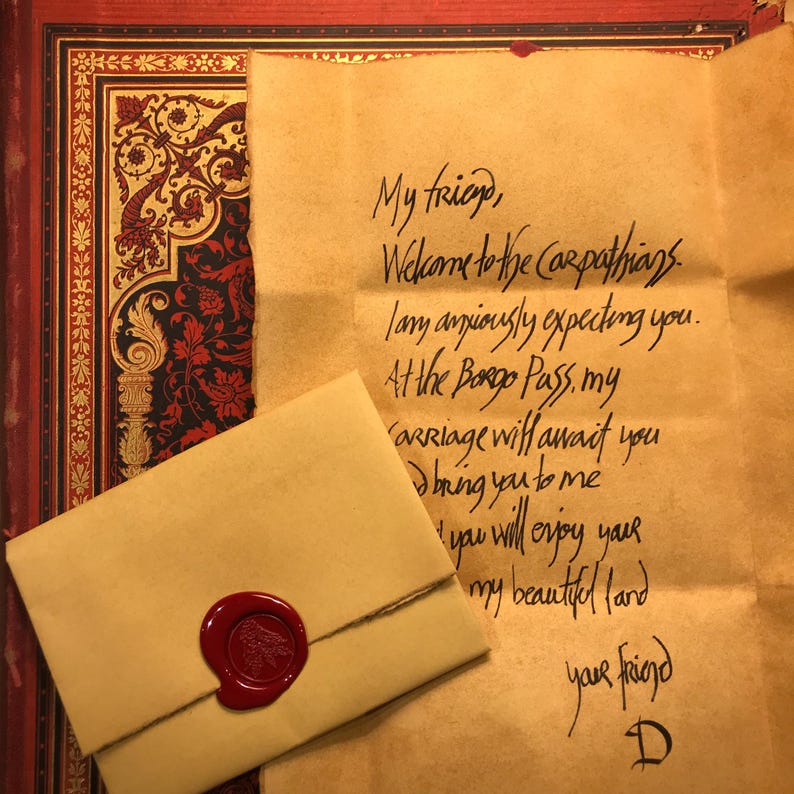 My friend,
Welcome to the Carpathians.
I am anxiously expecting you.
At the Borgo Pass, my
carriage will await you
bring you to me
you will enjoy your
my beautiful land
your friend
D